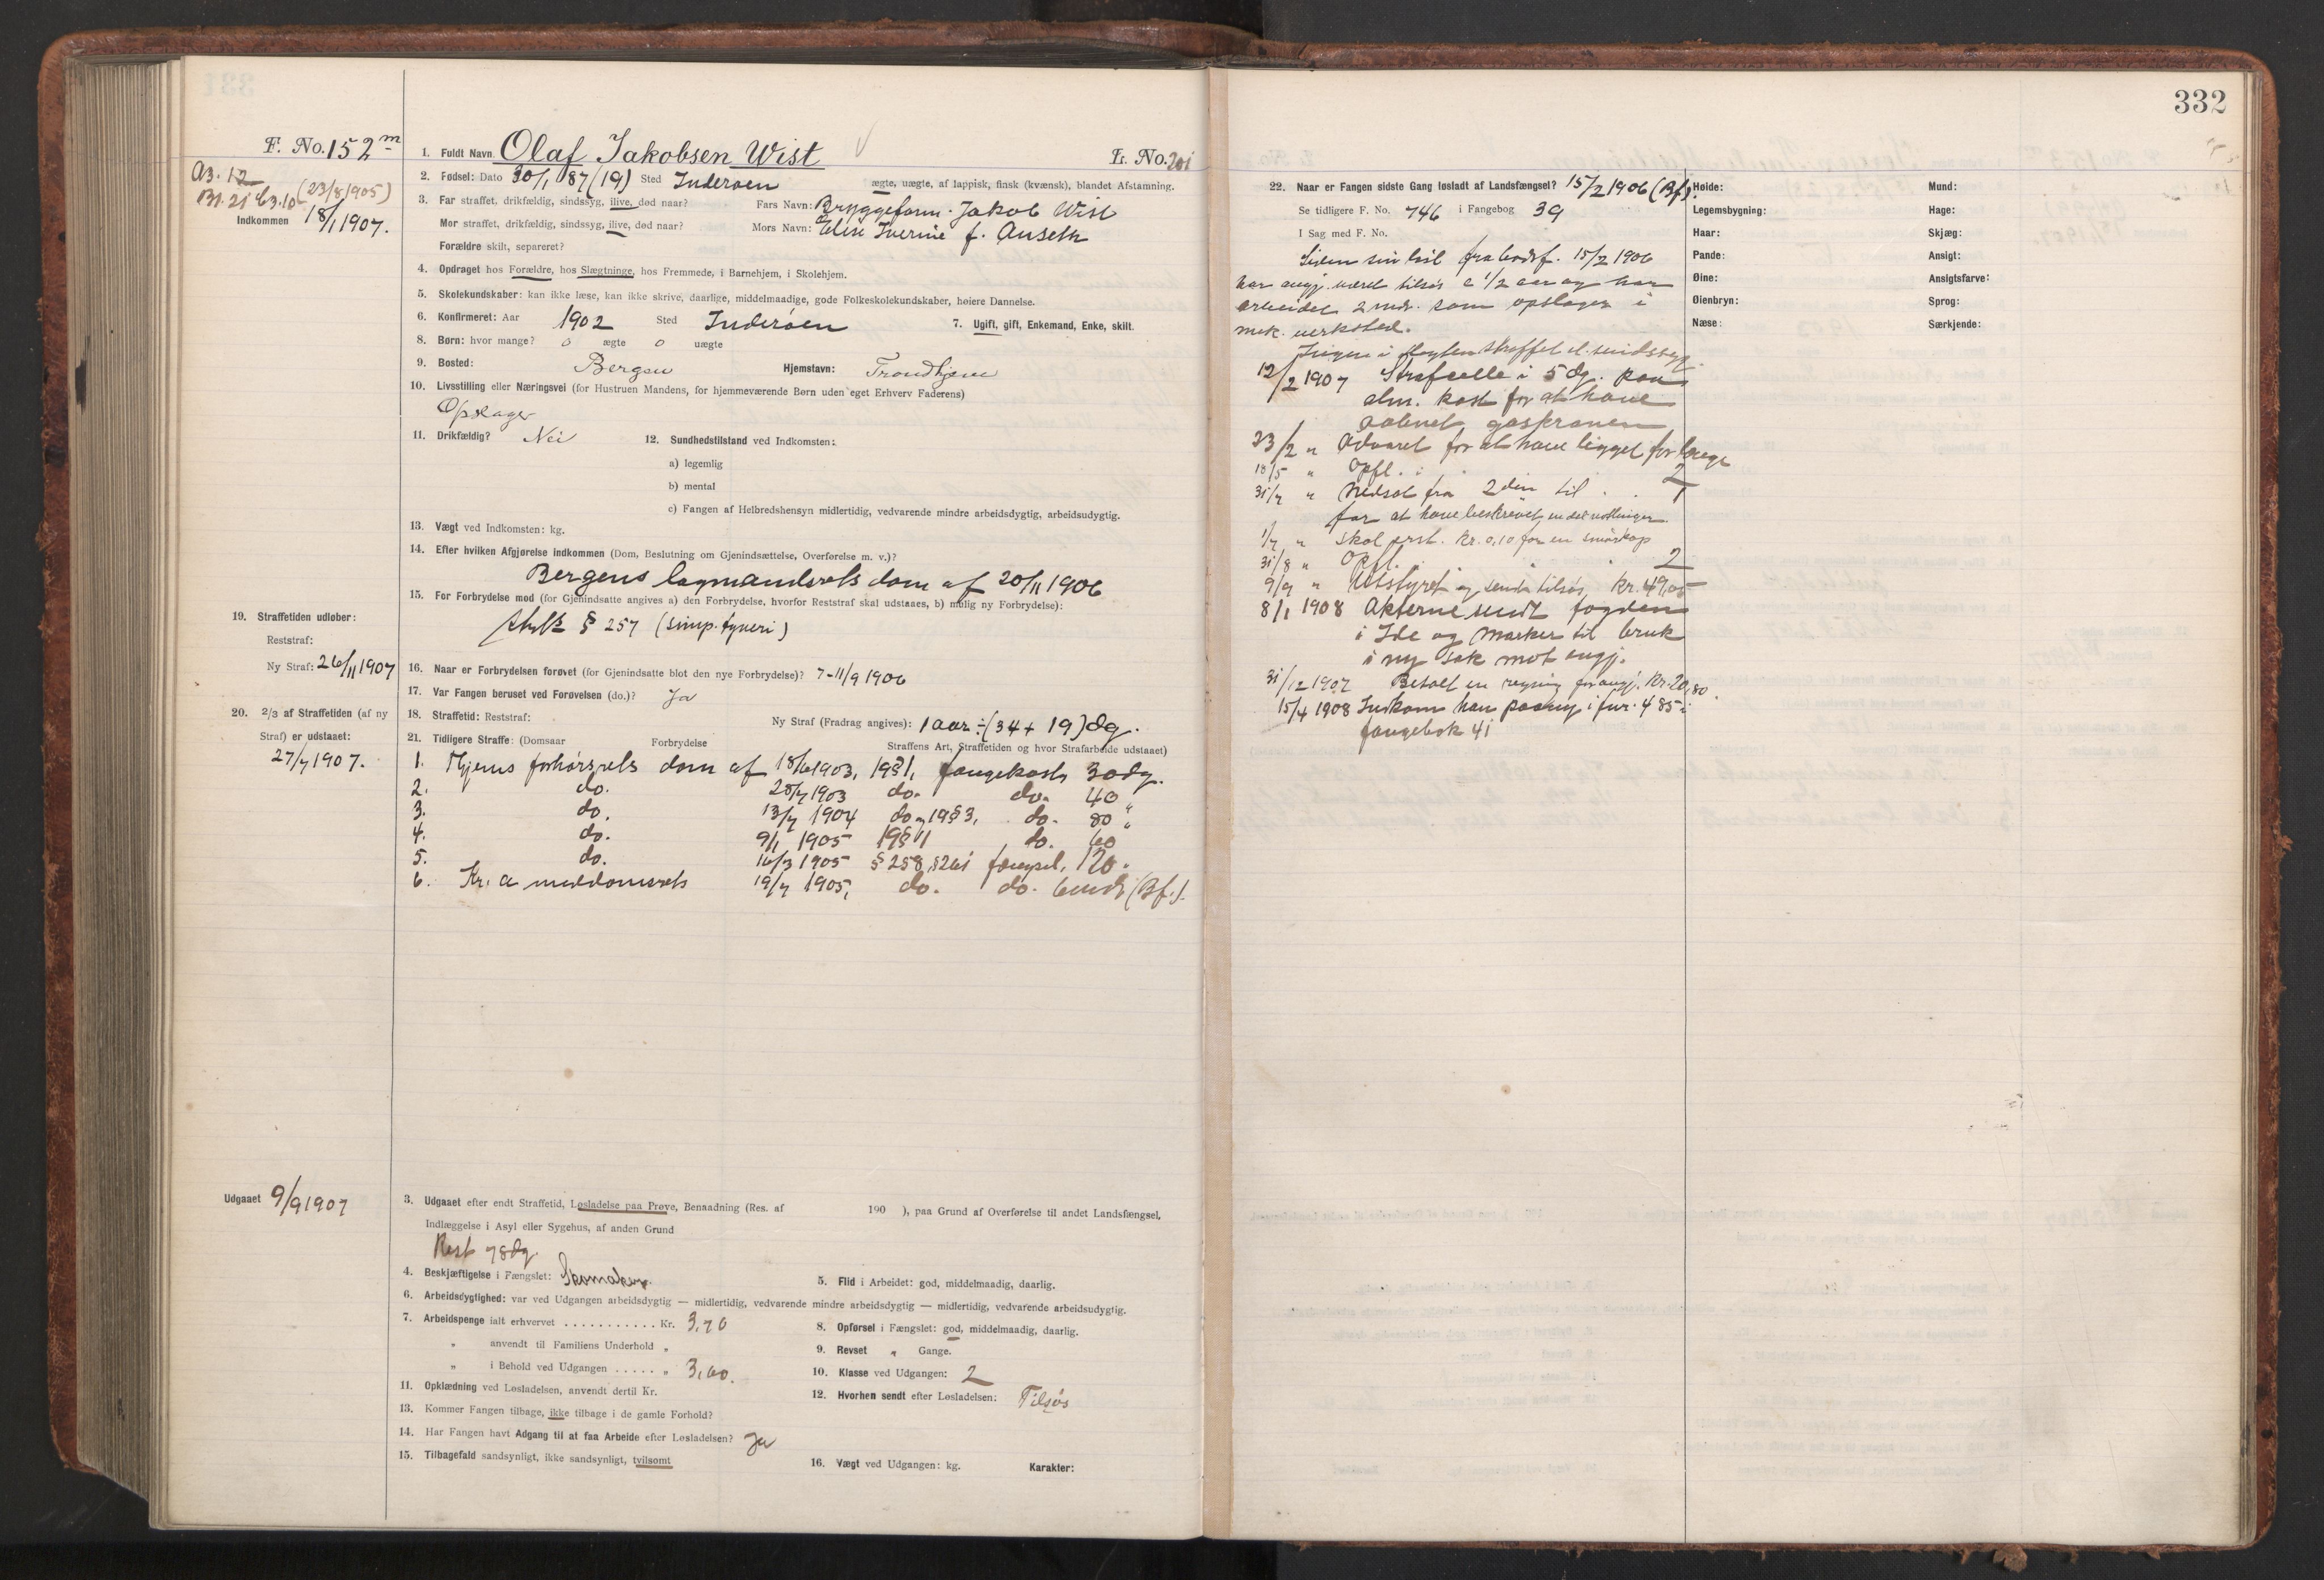 332
F. No. 152 m
1. Fuldt Navn Olaf Jakobsen Wist
L. No. 201
A3. 12
B1. 21 C3. 10 (23/8 1905)
Indkommen 18/1 1907.
2. Fødsel: Dato 30/1 87 (19) Sted Inderøen ægte, uægte, af lappisk, finsk (kvænsk), blandet Afstamning.
3. Far straffet, drikfældig, sindssyg, ilive, død naar? Fars Navn: Bryggeform. Jakob Wist
Mor straffet, drikfældig, sindssyg, ilive, død naar? Mors Navn: Elise Iverine f. Auseth
Forældre skilt, separeret?
4. Opdraget hos Forældre, hos Slægtninge, hos Fremmede, i Barnehjem, i Skolehjem.
5. Skolekundskaber: kan ikke læse, kan ikke skrive, daarlige, middelmaadige, gode Folkeskolekundskaber, høiere Dannelse.
6. Konfirmeret: Aar 1902 Sted Inderøen 7. Ugift, gift, Enkemand, Enke, skilt.
8. Børn: hvor mange? 0 ægte 0 uægte
9. Bosted: Bergen Hjemstavn: Trondhjem
10. Livsstilling eller Næringsvei (for Hustruen Mandens, for hjemmeværende Børn uden eget Erhverv Faderens)
Opslager
11. Drikfældig? Nei 12. Sundhedstilstand ved Indkomsten:
a) legemlig
b) mental
c) Fangen af Helbredshensyn midlertidig, vedvarende mindre arbeidsdygtig, arbeidsudygtig.
13. Vægt ved Indkomsten: kg.
14. Efter hvilken Afgjørelse indkommen (Dom, Beslutning om Gjenindsættelse, Overførelse m. v.)?
Bergens lagmandsrets dom af 20/11 1906
15. For Forbrydelse mod (for Gjenindsatte angives a) den Forbrydelse, hvorfor Reststraf skal udstaaes, b) mulig ny Forbrydelse):
§ 257 (simp. tyveri)
19. Straffetiden udløber:
Reststraf:
Ny Straf: 26/11 1907
16. Naar er Forbrydelsen forøvet (for Gjenindsatte blot den nye Forbrydelse)? 7-11/9 1906
17. Var Fangen beruset ved Forøvelsen (do.)? Ja
20. 2/3 af Straffetiden (af ny
Straf) er udstaaet:
27/7 1907.
18. Straffetid: Reststraf: Ny Straf (Fradrag angives): 1 aar ÷ (34 + 19) dg.
21. Tidligere Straffe: (Domsaar Forbrydelse Straffens Art, Straffetiden og hvor Strafarbeide udstaaet)
1. Thjems forhørsrets dom af 18/6 1903, 19§1, fangekost 30 dg.
2. do. 28/7 1903 do. do. 40 "
3. do. 13/7 1904 do og 19§3, do. 80 "
4. do. 9/1 1905 19§11 do. 60
5. do. 16/3 1905 § 258, § 261 fængsel, 120.
6. Kr. a meddomsrets 19/7 1905, do. do. 6 mdr (Bf.).
Udgaaet 9/9 1907
3. Udgaaet efter endt Straffetid, Løsladelse paa Prøve, Benaadning (Res. af 190 ), paa Grund af Overførelse til andet Landsfængsel,
Indlæggelse i Asyl eller Sygehus, af anden Grund
Rest 78 dg.
4. Beskjæftigelse i Fængslet: Skomaker. 5. Flid i Arbeidet: god, middelmaadig, daarlig.
6. Arbeidsdygtighed: var ved Udgangen arbeidsdygtig — midlertidig, vedvarende mindre arbeidsdygtig — midlertidig, vedvarende arbeidsudygtig.
7. Arbeidspenge ialt erhvervet . . . . . . . . . . . Kr. 3,70 8. Opførsel i Fængslet: god, middelmaadig, daarlig.
" anvendt til Familiens Underhold " 9. Revset " Gange.
" i Behold ved Udgangen . . . . . " 3,60. 10. Klasse ved Udgangen: 2
11. Opklædning ved Løsladelsen, anvendt dertil Kr. 12. Hvorhen sendt efter Løsladelsen: Tilsøs
13. Kommer Fangen tilbage, ikke tilbage i de gamle Forhold?
14. Har Fangen havt Adgang til at faa Arbeide efter Løsladelsen? Ja
15. Tilbagefald sandsynligt, ikke sandsynligt, tvilsomt 16. Vægt ved Udgangen: kg. Karakter:
22. Naar er Fangen sidste Gang løsladt af Landsfængsel? 15/2 1906 (Bf).
Se tidligere F. No. 746 i Fangebog 39
I Sag med F. No.
Siden sin løsl. fra bodsf. 15/2 1906
har angj. været tilsøs c 1/2 aar og har
arbeidet 2 mdr. som opslager i
mek. verksted.
Ingen i slegten straffet el. sindssyg.
12/2 1907 Strafcelle i 5 dg. paa
alm. kost for at have
aabnet gaskranen
23/2 " Advaret for at have ligget for længe
18/5 " Opfl. . . 2
31/7 " Nedsat fra 2den til . . 1
for at have beskrevet en del
1/7 " Kr. 0,10 for en
31/8 " Opfl. . . . 2
9/9 " Utstyret og sendt tilsøs Kr. 49,05
8/1 1908 Akterne sendt fogden
i Ide og Marker til bruk
i ny sak mot angj.
31/12 1907 Betalt en regning for angj. Kr. 20,80.
15/4 1908 Indkom han paany i fnr. 485 i
fangebok 41
Høide: Mund:
Legemsbygning: Hage:
Haar: Skjæg:
Pande: Ansigt:
Øine: Ansigtsfarve:
Øienbryn: Sprog:
Næse: Særkjende: